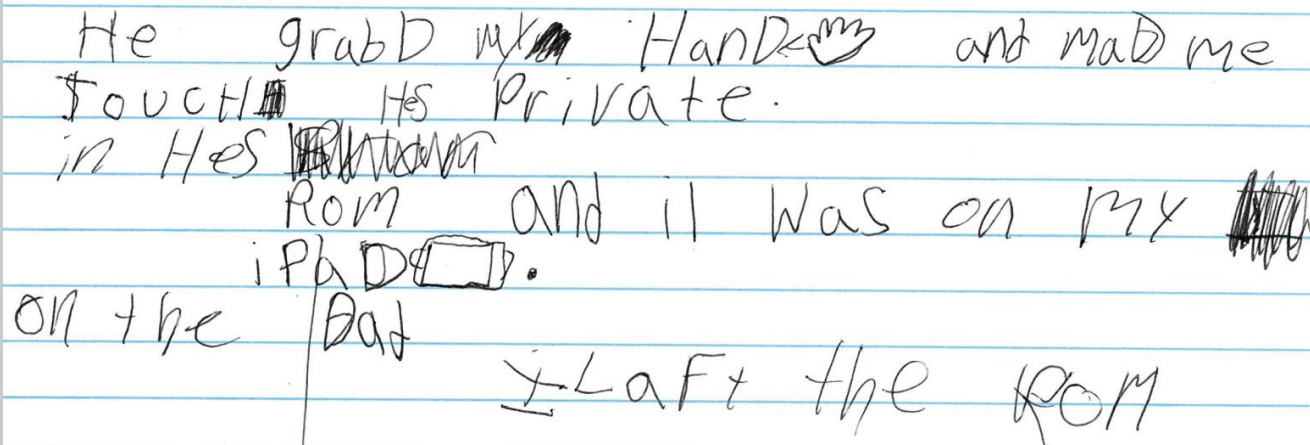 He grabD my HanD and maD me
TOUCH Hes Private.
in Hes
Rom and it was on my
iPaD.
on the Bad
I LaFt the Rom